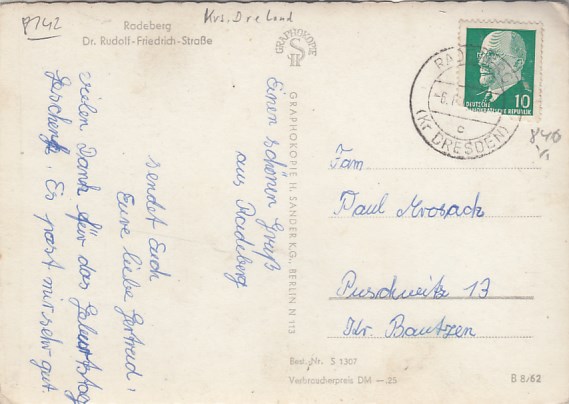 8142
Krs. Dresland
Radeberg
Dr. Rudolf-Friedrich-Straße
Einen schönen Gruß
aus Radeberg
sendet Euch
Eure liebe Gertrud,
vielen Dank für das Geburtstag
Geschenk. Es past mir sehr gut
GRAPHOKOPIE
GRAPHOKOPIE H. SANDER K.G., BERLIN N 113
10
DEUTSCHE
DEMOKRATISCHE REPUBLIK
c
(Kr DRESDEN)
840
Fam
Paul Mrosack
Puschwitz 13
Kr. Bautzen
Best. Nr. S 1307
Verbraucherpreis DM —.25
B 8/62